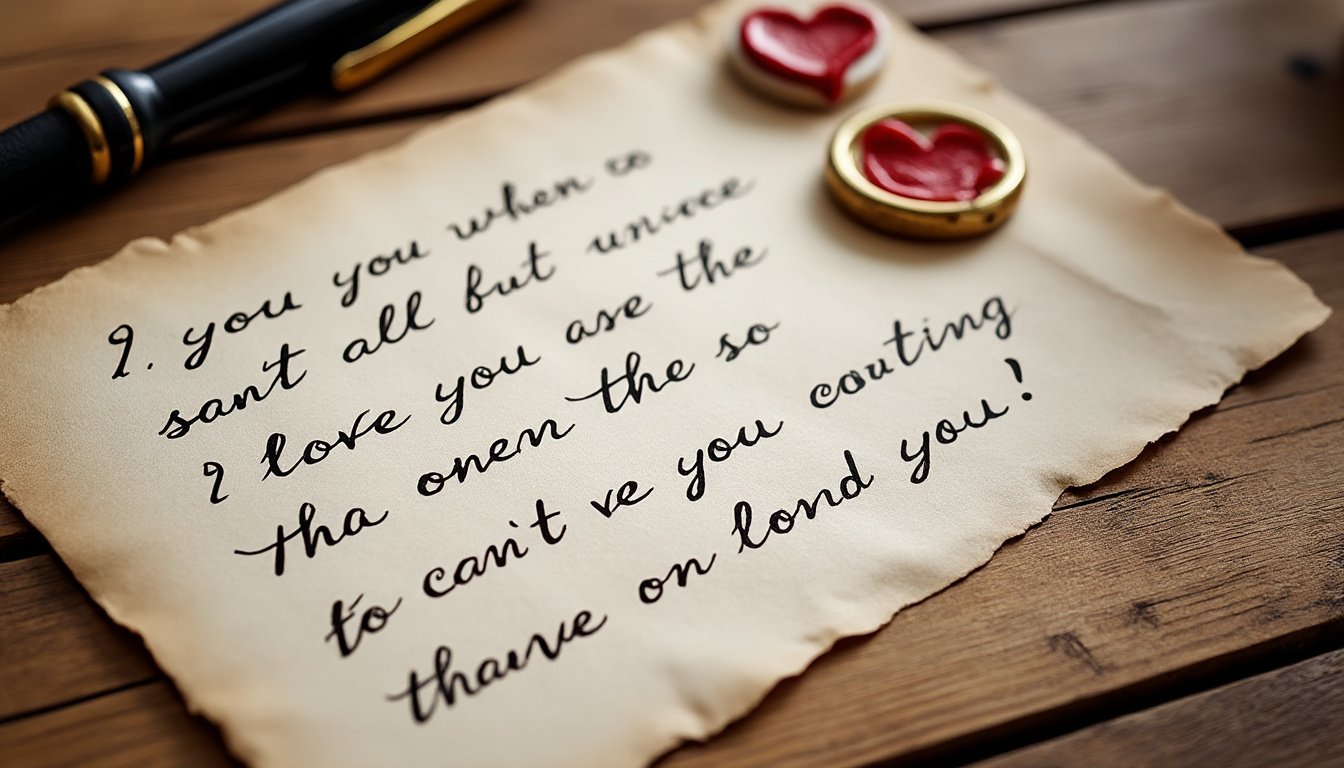 I. you you when co
san't all but unicce
I love you ase the
tha onen the so
to can't ve you couting
thauvve on lond you!